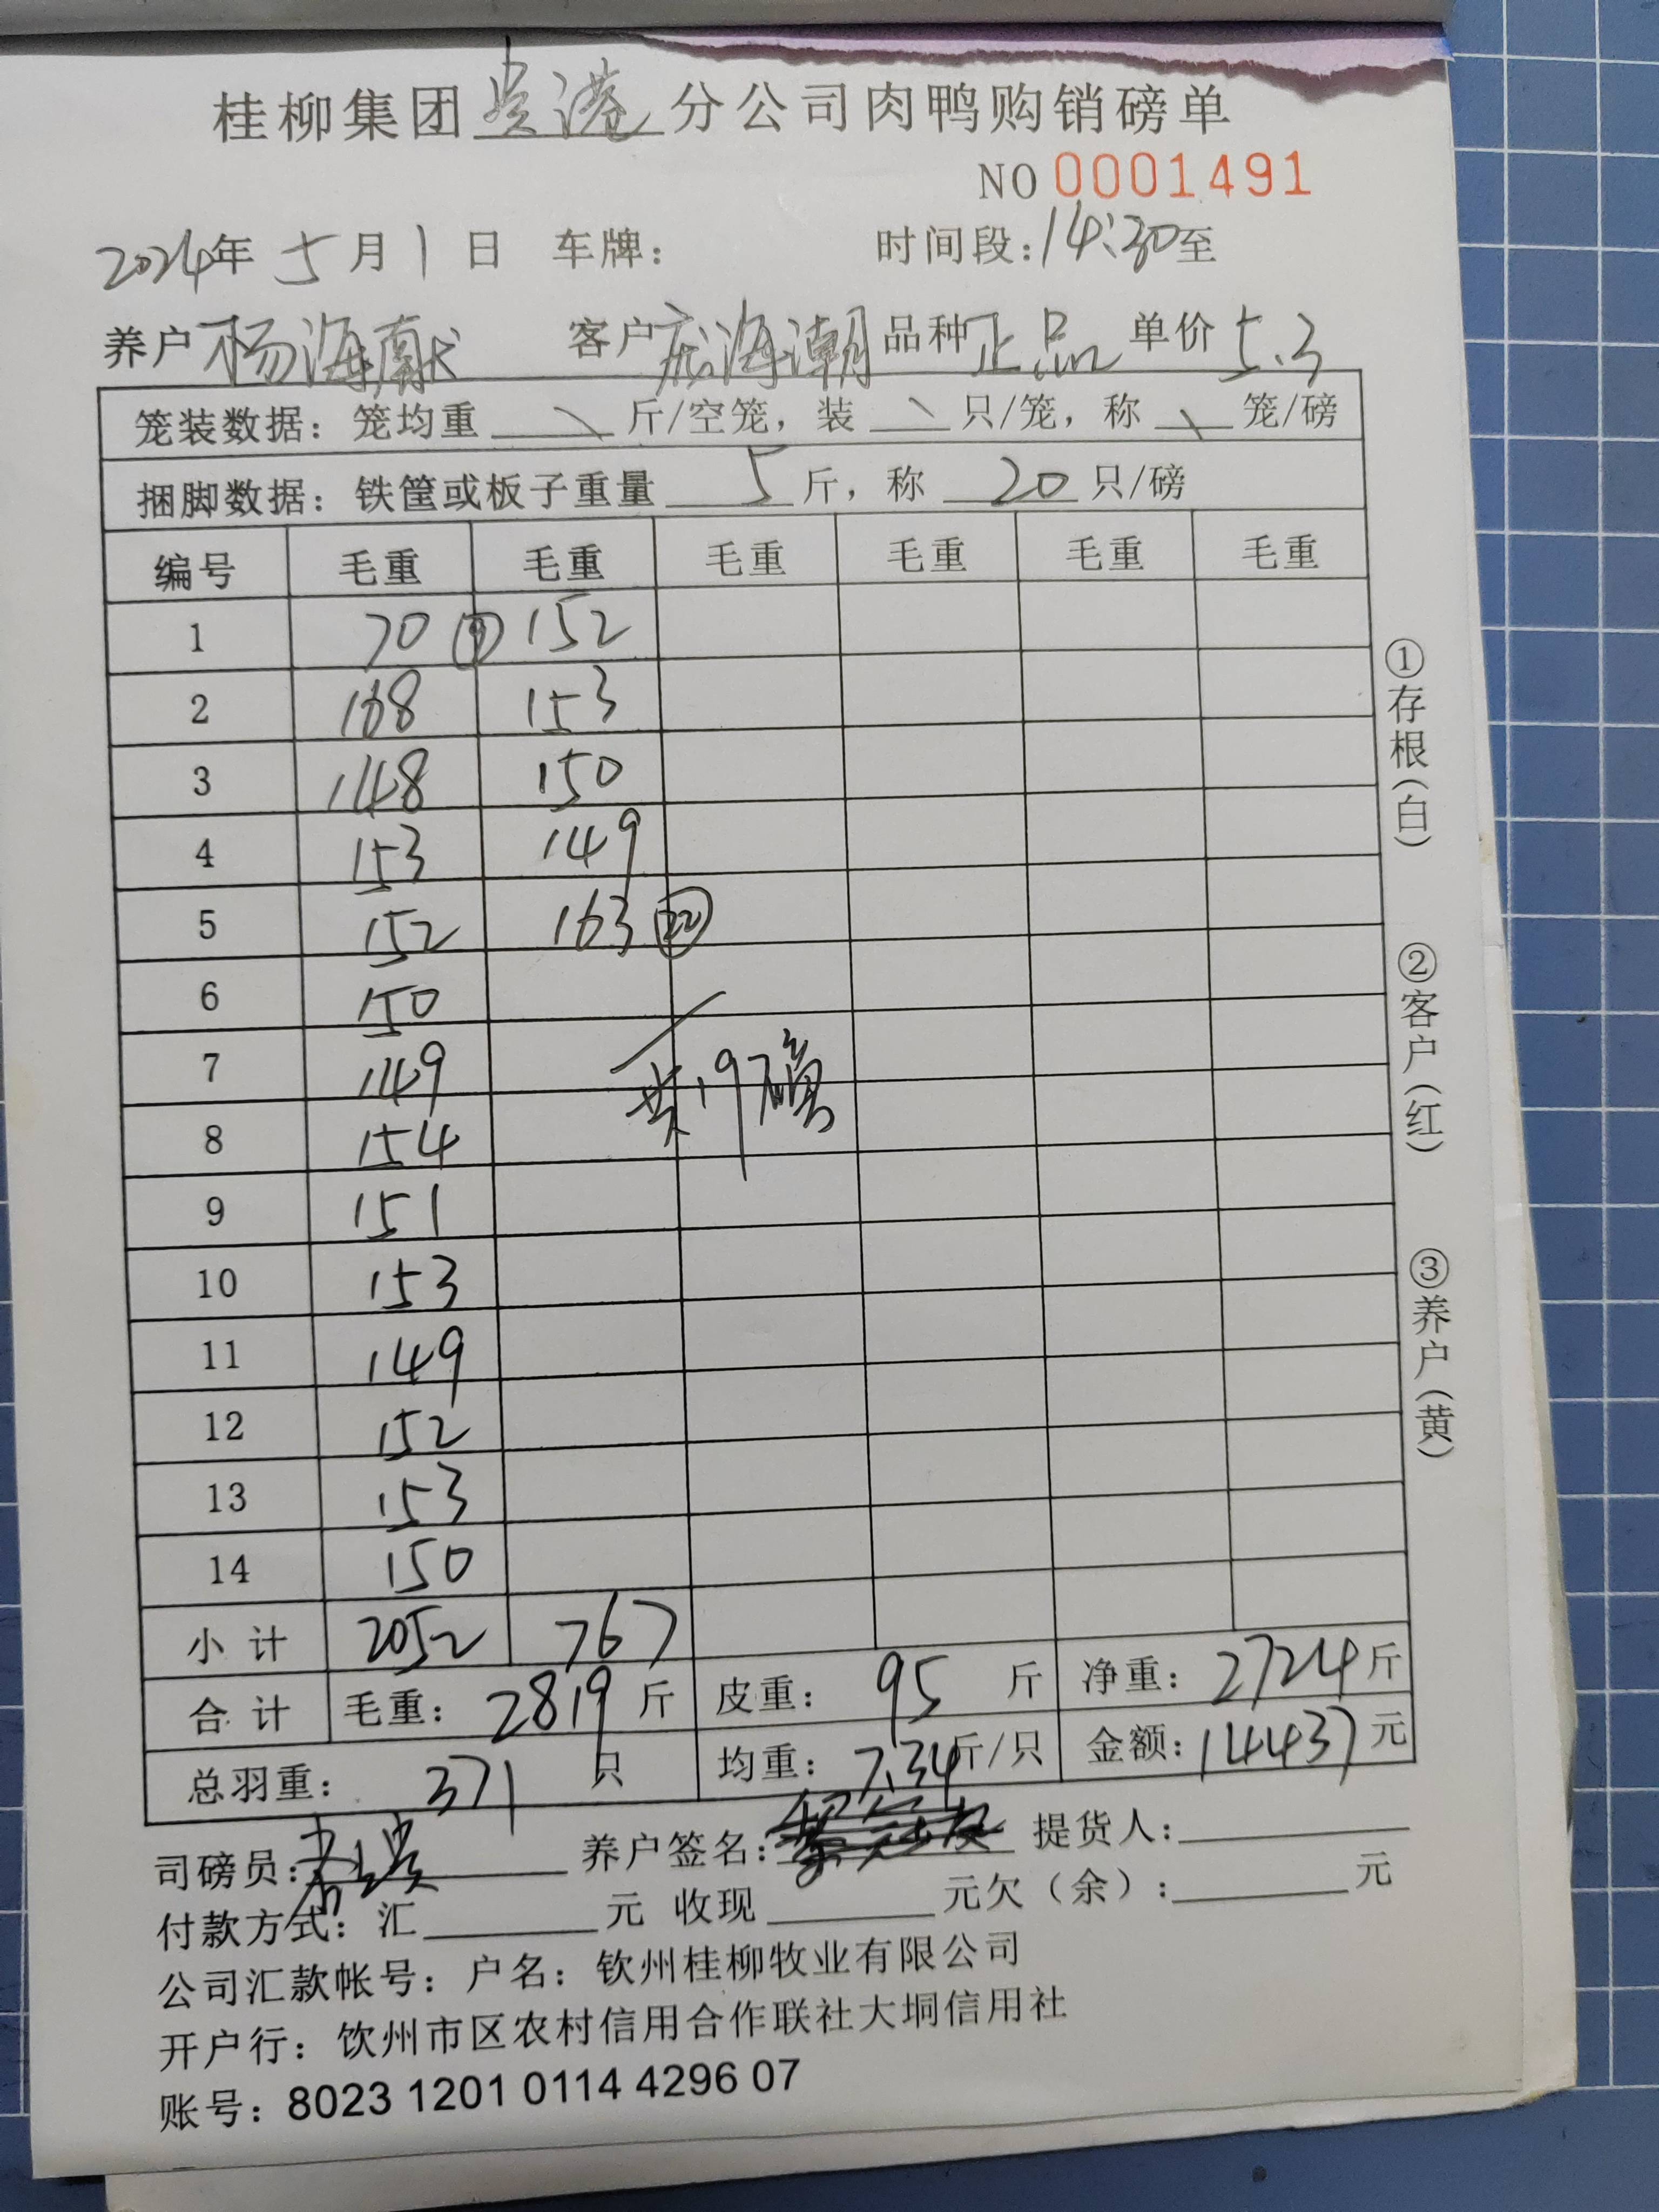 桂柳集团贵港分公司肉鸭购销磅单
NO 0001491
2024年 5月1日 车牌: 时间段:14:30至
养户 杨海献 客户 庞海潮 品种 正品 单价 5.3
笼装数据: 笼均重 \ 斤/空笼, 装 \ 只/笼, 称 \ 笼/磅
捆脚数据: 铁筐或板子重量 5 斤, 称 20 只/磅
编号 毛重 毛重 毛重 毛重 毛重 毛重
1 70 ⑨ 152
2 168 153
3 148 150
4 153 149
5 152 163 ㉒
6 150
7 149 共19磅
8 154
9 151
10 153
11 149
12 152
13 153
14 150
小计 2052 767
合计 毛重: 2819 斤 皮重: 95 斤 净重: 2724斤
总羽重: 371 只 均重: 7.34斤/只 金额: 14437元
司磅员: 养户签名: 提货人:
付款方式: 汇 元 收现 元欠(余): 元
公司汇款帐号: 户名: 钦州桂柳牧业有限公司
开户行: 钦州市区农村信用合作联社大垌信用社
账号: 8023 1201 0114 4296 07
①存根(白)
②客户(红)
③养户(黄)